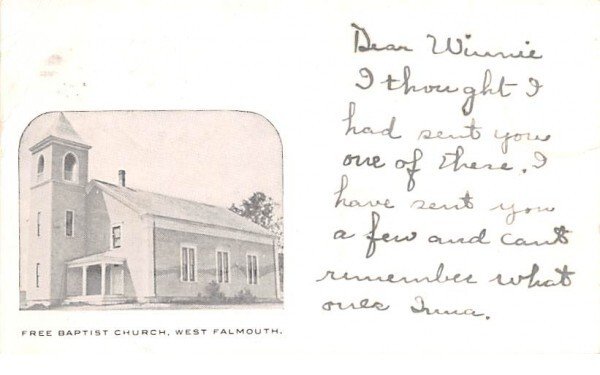 Dear Winnie
I thought I
had sent you
one of these. I
have sent you
a few and cant
remember what
ones Inna.
FREE BAPTIST CHURCH, WEST FALMOUTH.